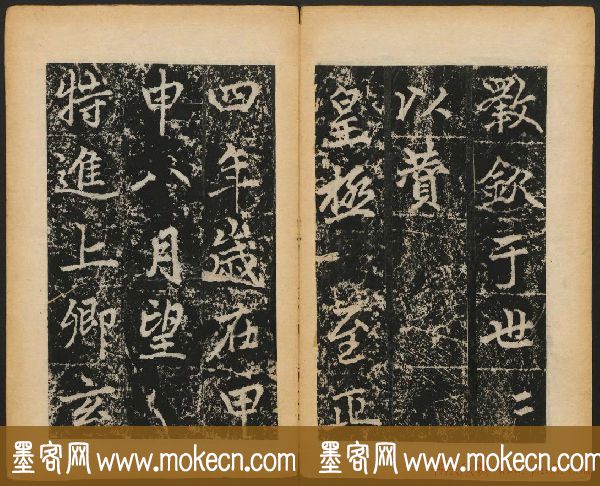 斁欽于世二
以賛
皇極至正
四年歲在甲
申八月望
特進上卿玄
墨客网 www.mokecn.com
墨客网 www.mokecn.com